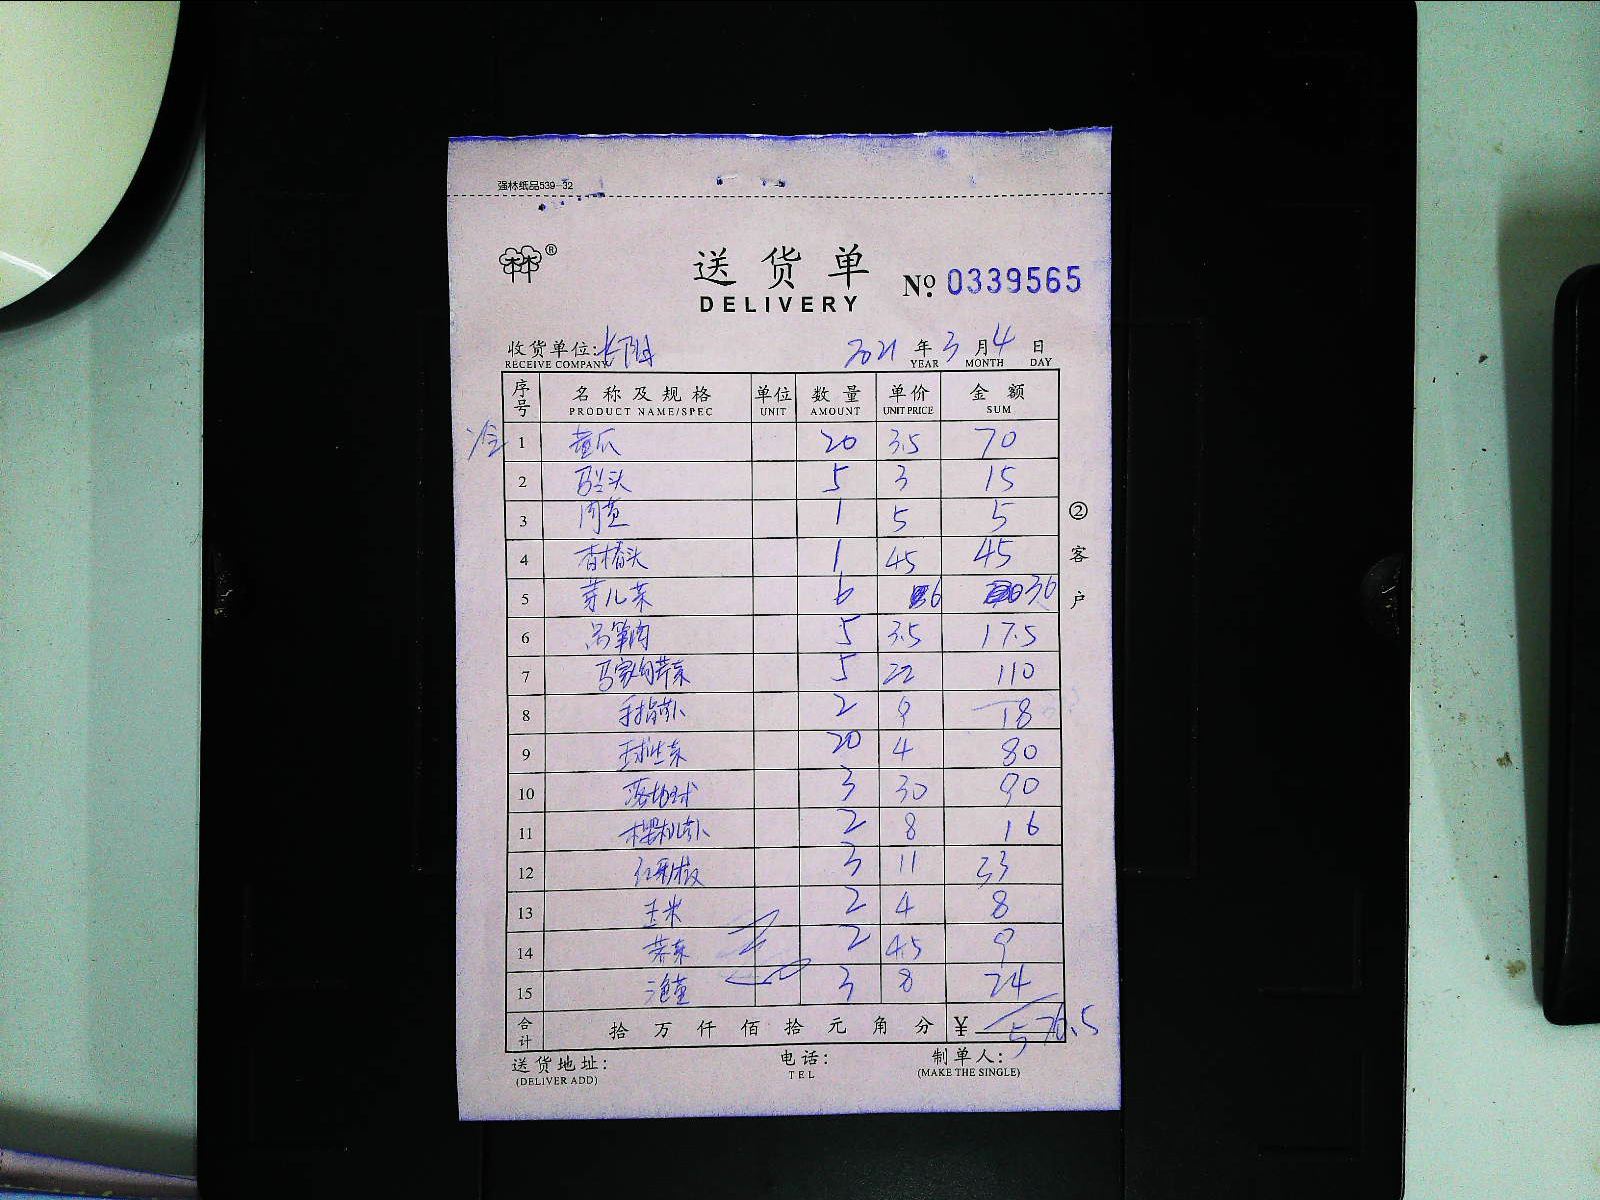 强林纸品539-32
送货单 № 0339565
DELIVERY
收货单位: 2021年3月4日
RECEIVE COMPANY YEAR MONTH DAY
序号 名称及规格 单位 数量 单价 金额
PRODUCT NAME/SPEC UNIT AMOUNT UNIT PRICE SUM
冷 1 黄瓜 20 3.5 70
2 马兰头 5 3 15
3 1 5 5
4 香椿头 1 45 45
5 芽儿菜 6 6 36
6 5 3.5 17.5
7 5 22 110
8 手指萝卜 2 9 18
9 球生菜 20 4 80
10 3 30 90
11 樱桃萝卜 2 8 16
12 红彩椒 3 11 33
13 玉米 2 4 8
14 荠菜 2 4.5 9
15 3 8 24
合计 拾万仟佰拾元角分 ¥ 576.5
② 客户
送货地址: 电话: 制单人:
(DELIVER ADD) TEL (MAKE THE SINGLE)